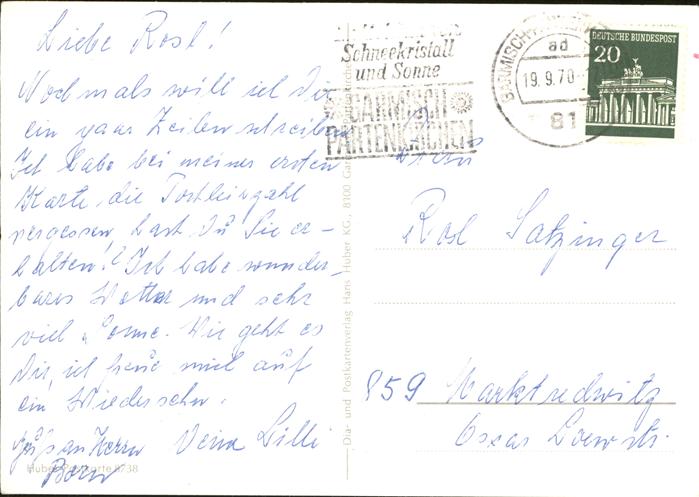 Liebe Rosl!
Nochmals will ich Dir
ein paar Zeilen schreiben
Ich habe bei meiner ersten
Karte die Postleitzahl
vergessen, hast Du Sie er-
halten!? Ich habe wunder-
bares Wetter und sehr
viel Sonne. Wie geht es
Dir, ich freue mich auf
ein Wiedersehn.
Deine Lilli
an Herrn
Huber Postkarte 8738
Dia- und Postkartenverlag Hans Huber KG, 8100 Garmisch-Partenkirchen
Schneekristall
und Sonne
GARMISCH
PARTENKIRCHEN
GARMISCH-PARTENKIRCHEN
ad
19.9.70
81
DEUTSCHE BUNDESPOST
20
Rosl Satzinger
859 Marktredwitz
Oscar Loewstr.